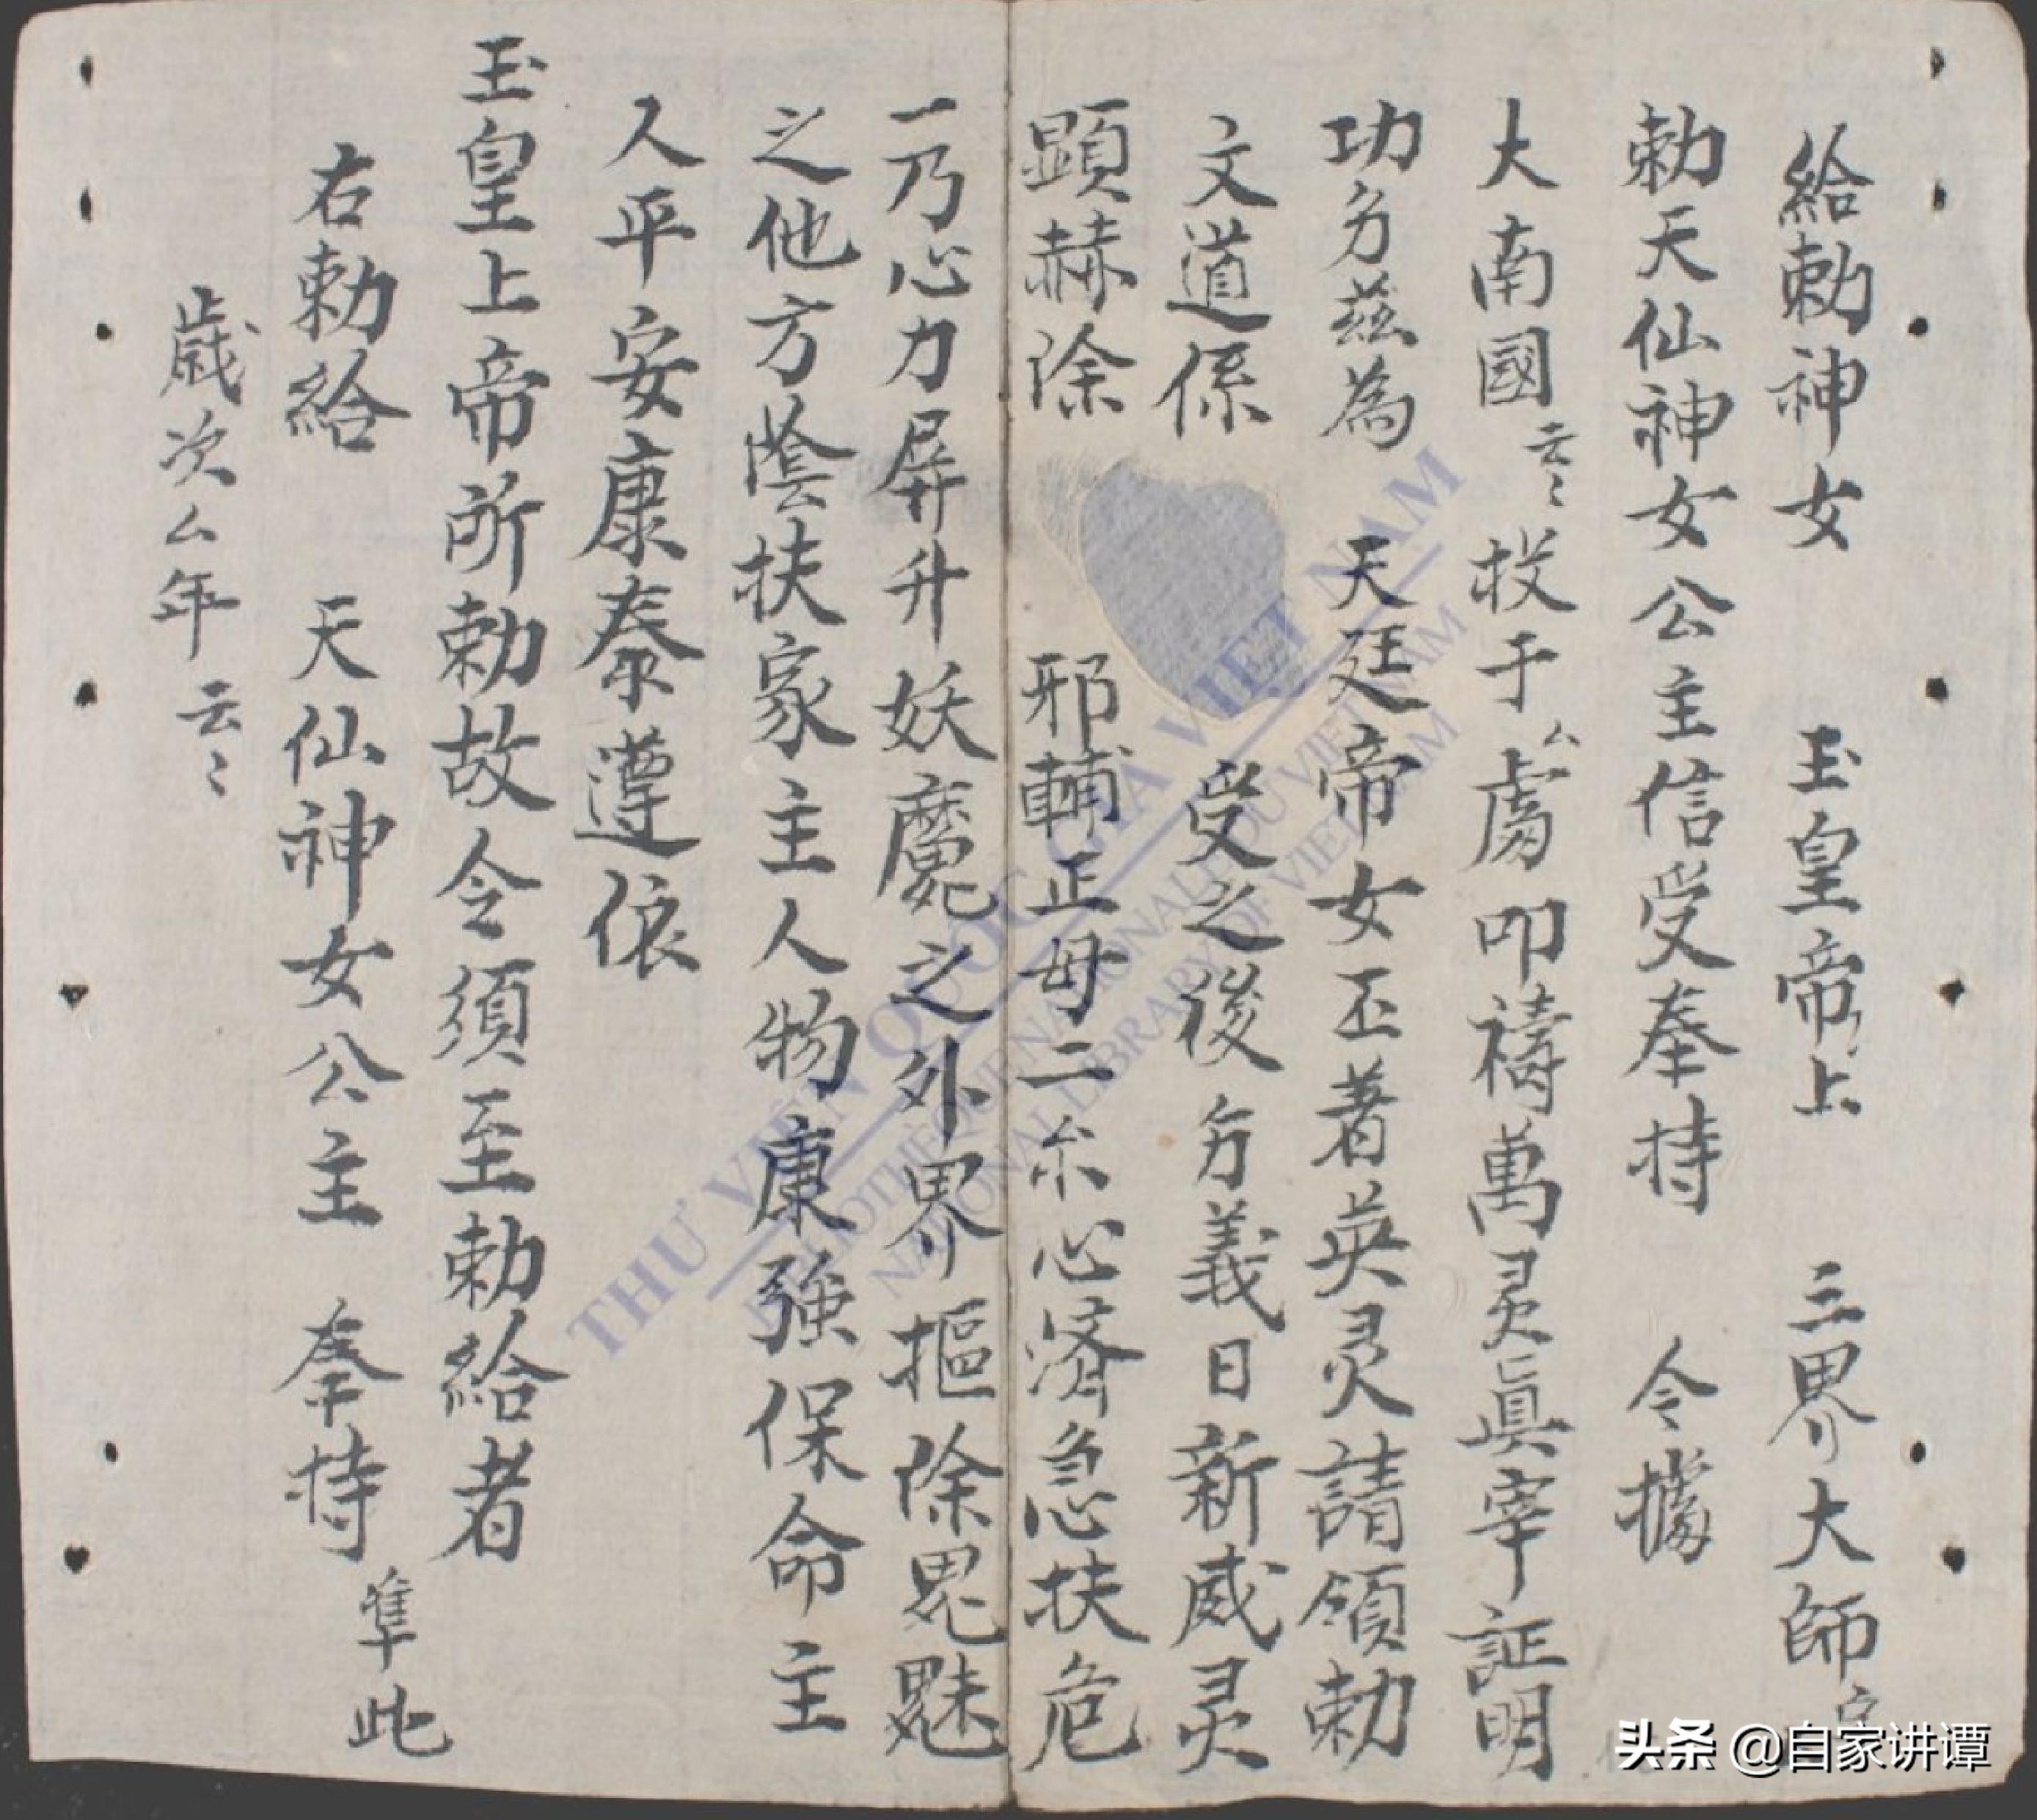 給勅神女 玉皇帝上 三界大師
勅天仙神女公主信受奉持 令據
大南國云〻投于厶處叩禱萬灵眞宰証明
功另茲為 天廷帝女丕著英灵請領勅
文道係 受之後另義日新威灵
顕赫除 邪輔正毋二尒心済急扶危
一乃心力屏升妖魔之外界摳除鬼魅
之他方蔭扶家主人物康強保命主
人平安康泰遵依
玉皇上帝所勅故令須至勅給者
右勅給 天仙神女公主 奉持 準此
歲次厶年云〻
THƯ VIỆN QUỐC GIA VIỆT NAM
NATIONAL LIBRARY OF VIET NAM
头条 @自家讲谭